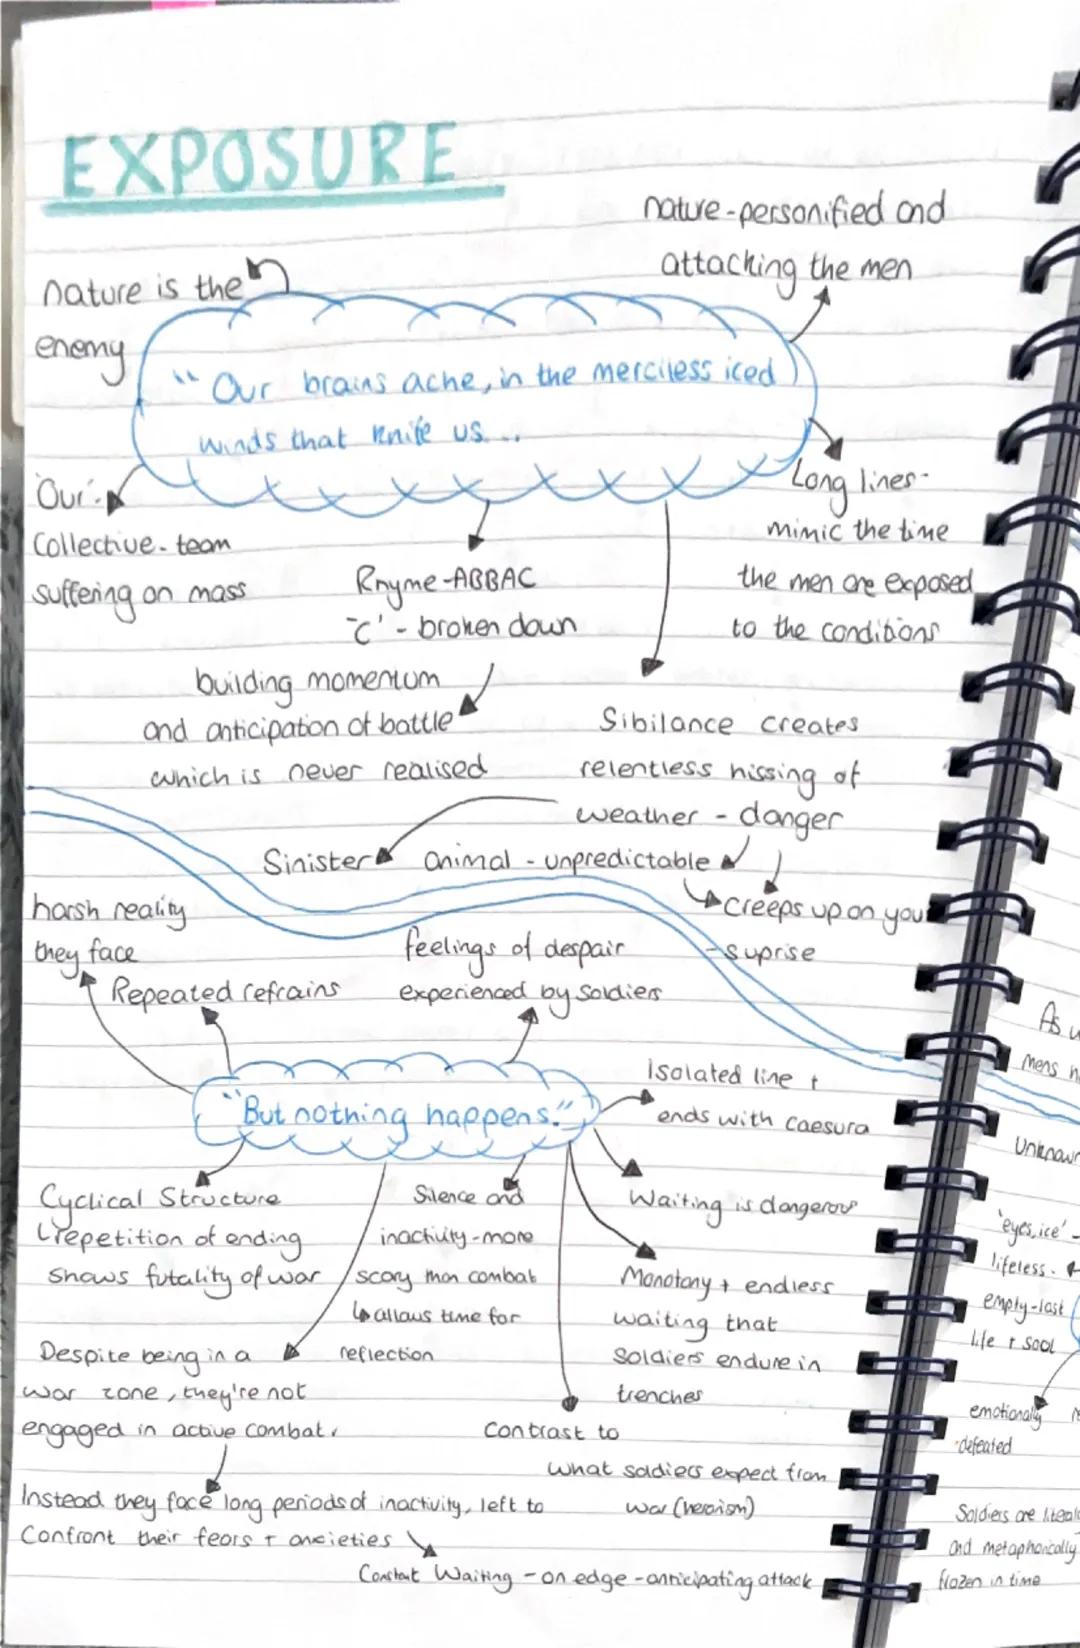 EXPOSURE
nature-personified and
attacking the men
nature is the
enemy
"Our brains ache, in the merciless iced
winds that knife us...
'Our'-
Collective-team
suffering on mass
Long lines-
mimic the time
the men are exposed
to the conditions
Rhyme-ABBAC
'C' - broken down
building momentum
and anticipation of battle
which is never realised
Sibilance creates
relentless hissing of
weather - danger
Sinister
animal - unpredictable
creeps up on you
-suprise
harsh reality
they face
Repeated refrains
feelings of despair
experienced by soldiers
"But nothing happens."
Isolated line +
ends with caesura
Cyclical Structure
repetition of ending
shows futality of war
Silence and
inactivity-more
scary than combat
allows time for
reflection
Waiting is dangerous
Monotony + endless
waiting that
soldiers endure in
trenches
Despite being in a
war zone, they're not
engaged in active combat.
Contrast to
what soldiers expect from
war (heroism)
Instead they face long periods of inactivity, left to
Confront their fears + anxieties
Constant Waiting - on edge - anticipating attack
As
mens
'eyes, ice' -
lifeless.
empty-lost
life + soul
emotionally
defeated
Soldiers are
and metaphorically
frozen in time